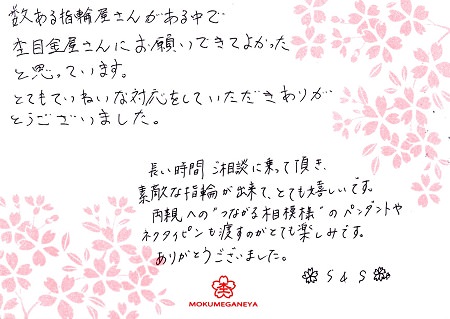 数ある指輪屋さんがある中で
杢目金屋さんにお願いできてよかった
と思っています。
とてもていねいな対応をしていただきありが
とうございました。
長い時間ご相談に乗って頂き、
素敵な指輪が出来て、とても嬉しいです。
両親への"つながる相模様"のペンダントや
ネクタイピンも渡すのがとても楽しみです。
ありがとうございました。
S & S
杢
MOKUMEGANEYA